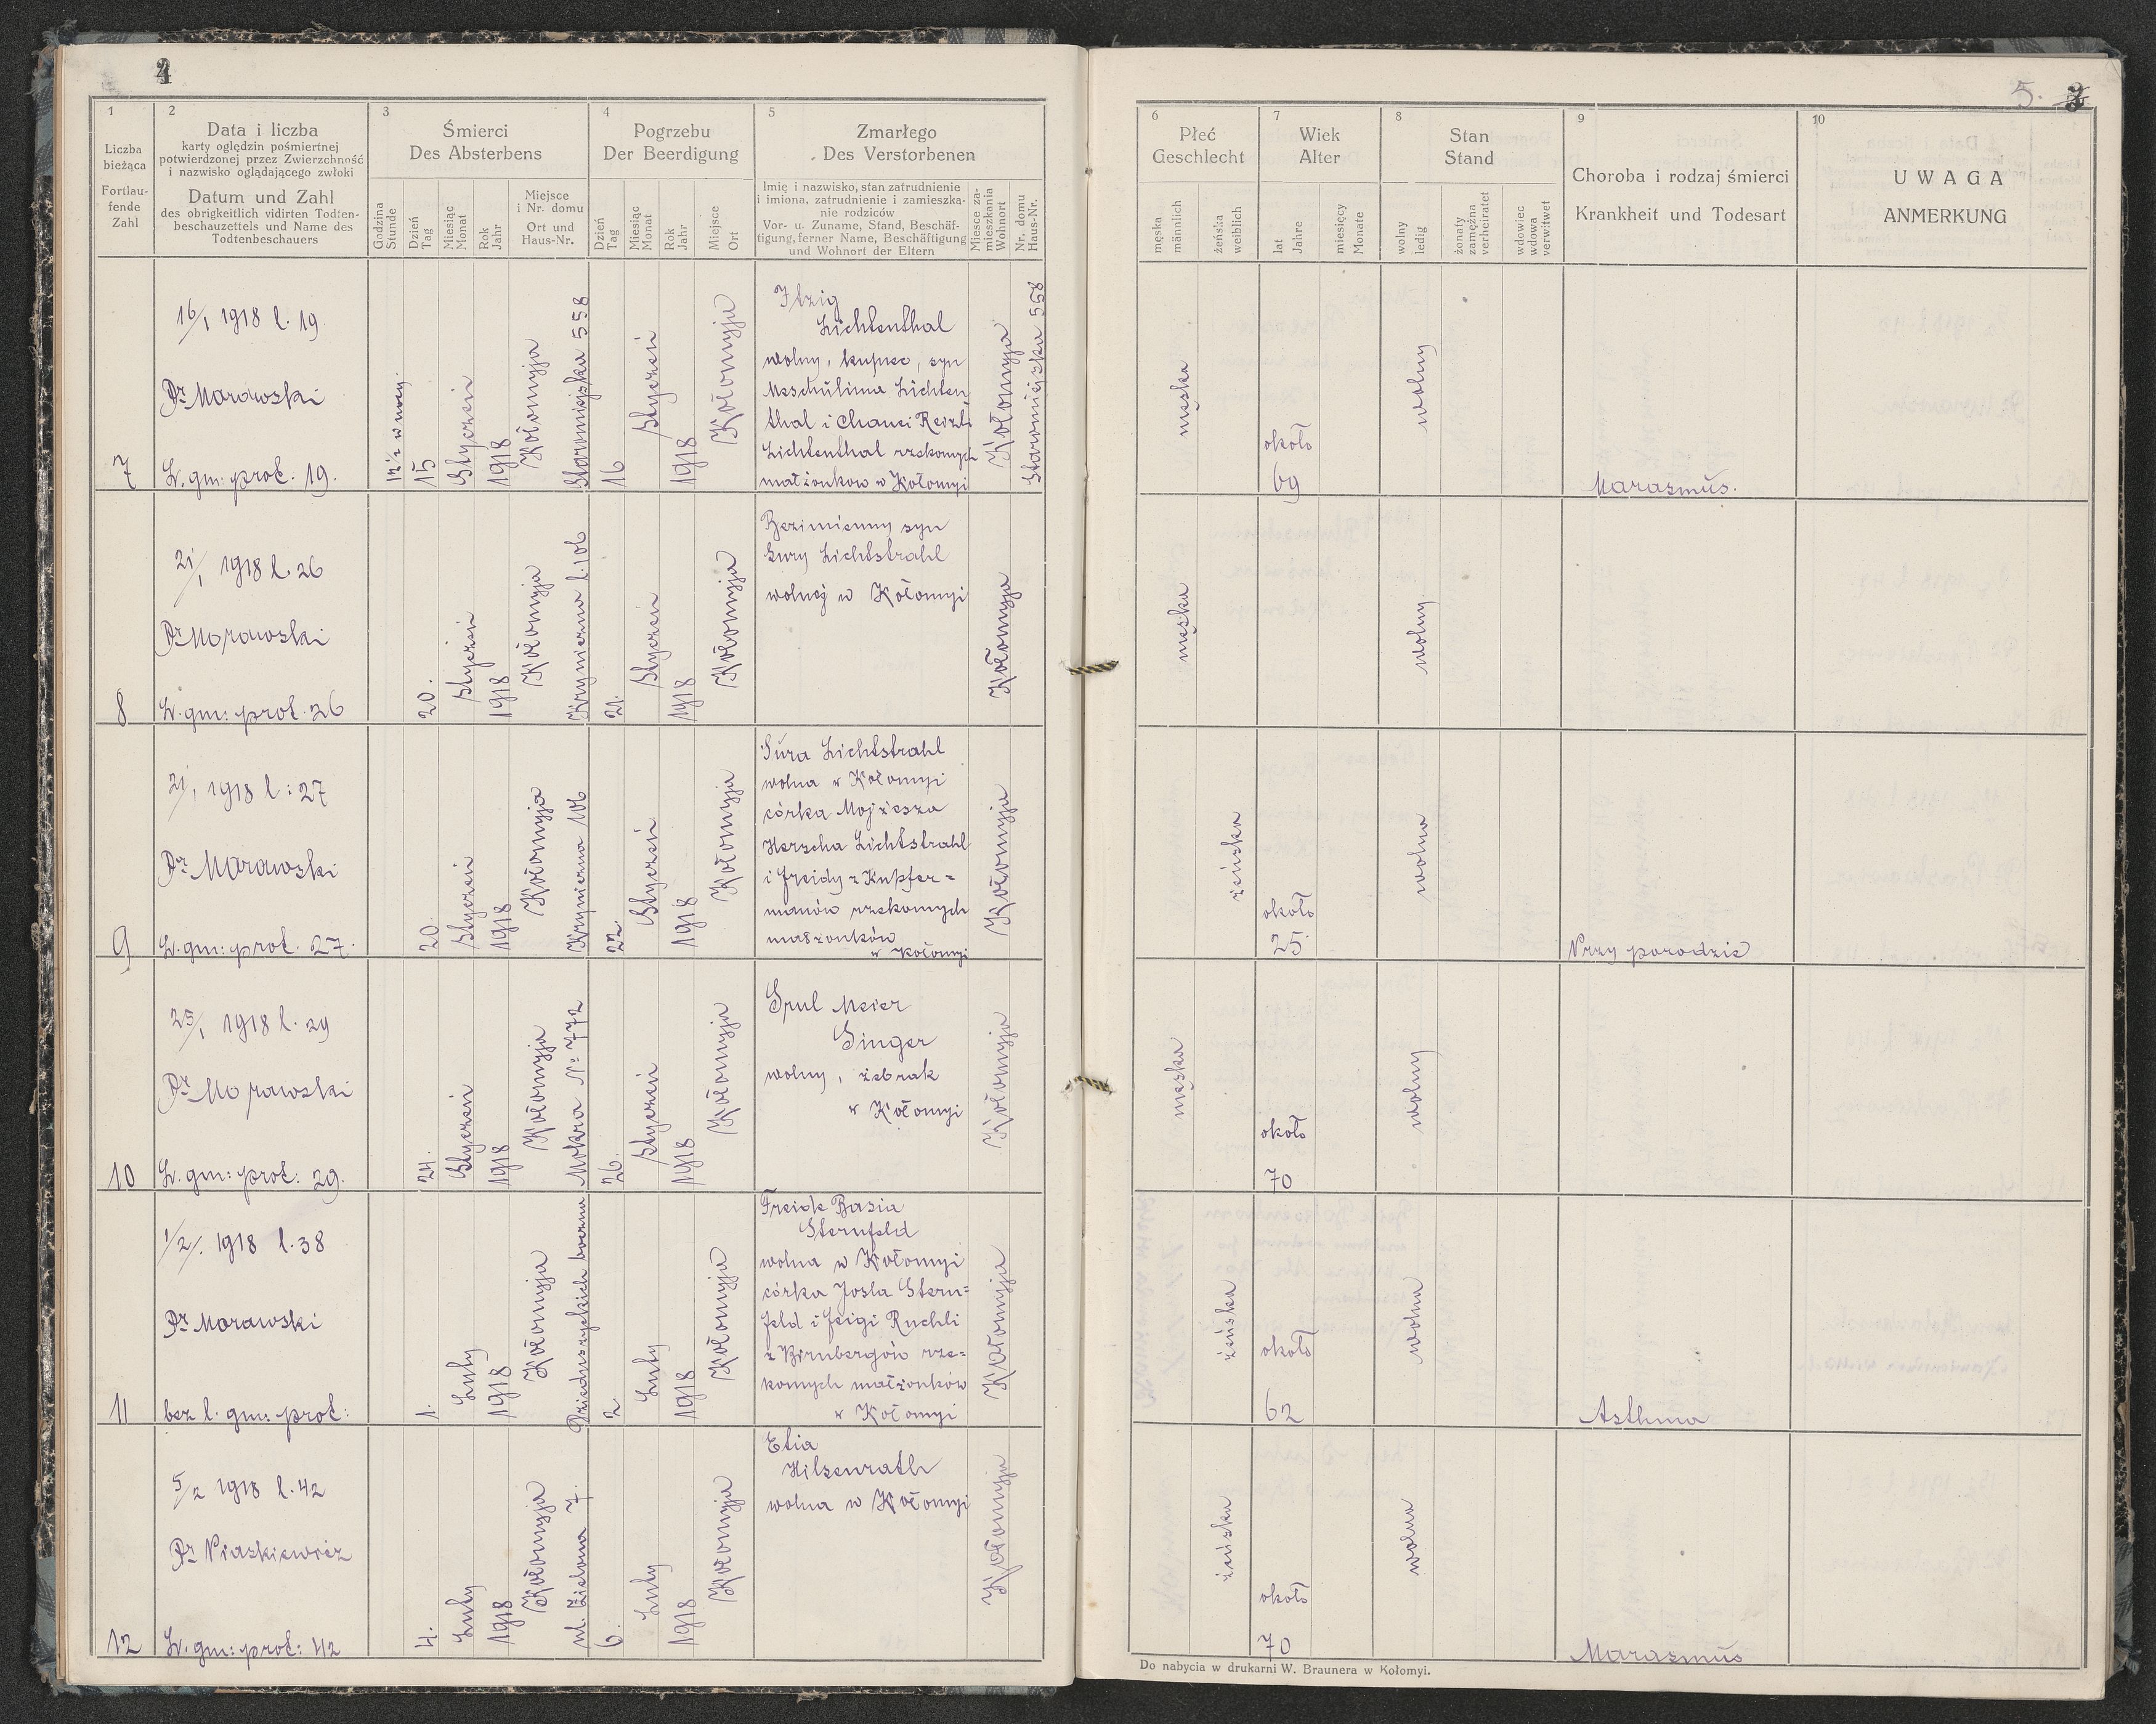 4
5.
1
Liczba
bieżąca
Fortlau-
fende
Zahl
2
Data i liczba
karty oględzin pośmiertnej
potwierdzonej przez Zwierzchność
i nazwisko oglądającego zwłoki
Datum und Zahl
des obrigkeitlich vidirten Todten-
beschauzettels und Name des
Todtenbeschauers
3
Śmierci
Des Absterbens
Godzina
Stunde
Dzień
Tag
Miesiąc
Monat
Rok
Jahr
Miejsce
i Nr. domu
Ort und
Haus-Nr.
4
Pogrzebu
Der Beerdigung
Dzień
Tag
Miesiąc
Monat
Rok
Jahr
Miejsce
Ort
5
Zmarłego
Des Verstorbenen
Imię i nazwisko, stan zatrudnienie
i imiona, zatrudnienie i zamieszka-
nie rodziców
Vor- u. Zuname, Stand, Beschäf-
tigung, ferner Name, Beschäftigung
und Wohnort der Eltern
Miejsce za-
mieszkania
Wohnort
Nr. domu
Haus-Nr.
6
Płeć
Geschlecht
męska
männlich
żeńska
weiblich
7
Wiek
Alter
lat
Jahre
miesięcy
Monate
8
Stan
Stand
wolny
ledig
żonaty
zamężna
verheiratet
wdowiec
wdowa
verwitwet
9
Choroba i rodzaj śmierci
Krankheit und Todesart
10
UWAGA
ANMERKUNG
7
16/1 1918 l. 19
Dr Morawski
L. gm: prot. 19.
12 1/2 w nocy
15
Styczeń
1918
Kołomyja
Staromiejska 558
16
Styczeń
1918
Kołomyja
Itzig
Lichtenthal
wolny, kupiec, syn
Meschulima Lichten
thal i Chanci Reizli
Lichtenthal rzekomych
małżonkow w Kołomyi
Kołomyja
Staromiejska 558
męska
około
69
wolny
Marasmus.
8
21/1 1918 l. 26
Dr Morawski
L. gm: prot. 26
20.
Styczeń
1918
Kołomyja
Kryniczna l. 106
21.
Styczeń
1918
Kołomyja
Bezimienny syn
Sury Lichtstrahl
wolnej w Kołomyi
Kołomyja
męska
wolny
9
21/1 1918 l: 27
Dr Morawski
L. gm: prot. 27.
20.
Styczeń
1918
Kołomyja
Kryniczna 106
22.
Styczeń
1918
Kołomyja
Sura Lichtstrahl
wolna w Kołomyi
córka Mojżesza
Herscha Lichtstrahl
i Freidy z Kupfer=
manów rzekomych
małżonków
w Kołomyi
Kołomyja
żeńska
około
25
wolna
Przy porodzie
10
25/1 1918 l. 29
Dr Morawski
L. gm: prot: 29.
24.
Styczeń
1918
Kołomyja
Mokra No 772
26.
Styczeń
1918
Kołomyja
Srul Meier
Singer
wolny, żebrak
w Kołomyi
Kołomyja
męska
około
70
wolny
11
1/2/. 1918 l. 38
Dr Morawski
bez l. gm: prot:
1.
Luty
1918
Kołomyja
Dzieduszyckich boczna
2.
Luty
1918
Kołomyja
Freide Basia
Sternfeld
wolna w Kołomyi
córka Josla Stern=
feld i Feigi Ruchli
z Birnbergów rze=
komych małżonków
w Kołomyi
Kołomyja
żeńska
około
62
wolna
Asthma
12
5/2 1918 l. 42
Dr Piaskiewicz
L. gm: prot: 42
4.
Luty
1918
Kołomyja
ul. Zielona 7.
6.
Luty
1918
Kołomyja
Etia
Hilsenrath
wolna w Kołomyi
Kołomyja
żeńska
około
70
wolna
Marasmus
Do nabycia w drukarni W. Braunera w Kołomyi.